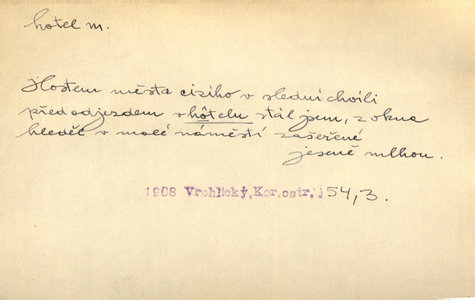 hotel m.
Hostem města cizího v slední chvíli
před odjezdem v hôtelu stál jsem, z okna
hledě v malé náměstí zašeřené
jeseně mlhou.
1908 Vrchlický, Kor.ostr., 54,3.